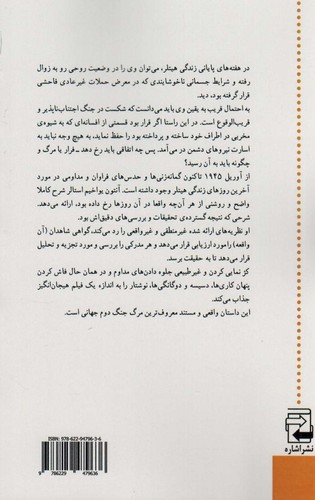 در هفته‌های پایانی زندگی هیتلر، می‌توان وی را در وضعیت روحی رو به زوال
رفته و شرایط جسمانی ناخوشایندی که در معرض حملات غیرعادی فاحشی
قرار گرفته بود، دید.
به احتمال قریب به یقین وی باید می‌دانست که شکست در جنگ اجتناب‌ناپذیر و
قریب‌الوقوع است. در این راستا اگر قرار بود قسمتی از افسانه‌ای که به شیوه‌ی
مخربی در اطراف خود ساخته و پرداخته بود را حفظ نماید، به هیچ وجه نباید به
اسارت نیروهای دشمن در می‌آمد. پس چه اتفاقی باید رخ دهد ... فرار یا مرگ و
چگونه باید به آن رسید؟
از آوریل ۱۹۴۵ تاکنون گمانه‌زنی‌ها و حدس‌های فراوان و مداومی در مورد
آخرین روزهای زندگی هیتلر وجود داشته است. آنتون یواخیم استالر شرح کاملا
واضح و روشنی از هر آن‌چه واقعا در آن روزها رخ داده بود، ارائه می‌دهد.
شرحی که نتیجه گسترده‌ی تحقیقات و بررسی‌های دقیق‌اش بود.
او نظریه‌های ارائه شده غیرمنطقی و غیرواقعی را رد می‌کند، گواهی شاهدان (آن
واقعه) را مورد ارزیابی قرار می‌دهد و هر مدرکی را بررسی و مورد تجزیه و تحلیل
قرار می‌دهد تا به حقیقت برسد.
کژ نمایی کردن و غیرطبیعی جلوه دادن‌های مداوم و در همان حال فاش کردن
پنهان کاری‌ها، دسیسه و دوگانگی‌ها، نوشتار را به اندازه یک فیلم هیجان‌انگیز
جذاب می‌کند.
این داستان واقعی و مستند معروف‌ترین مرگ جنگ دوم جهانی است.
نشر اشاره
ISBN: 978-622-94796-3-6
9 786229 479636